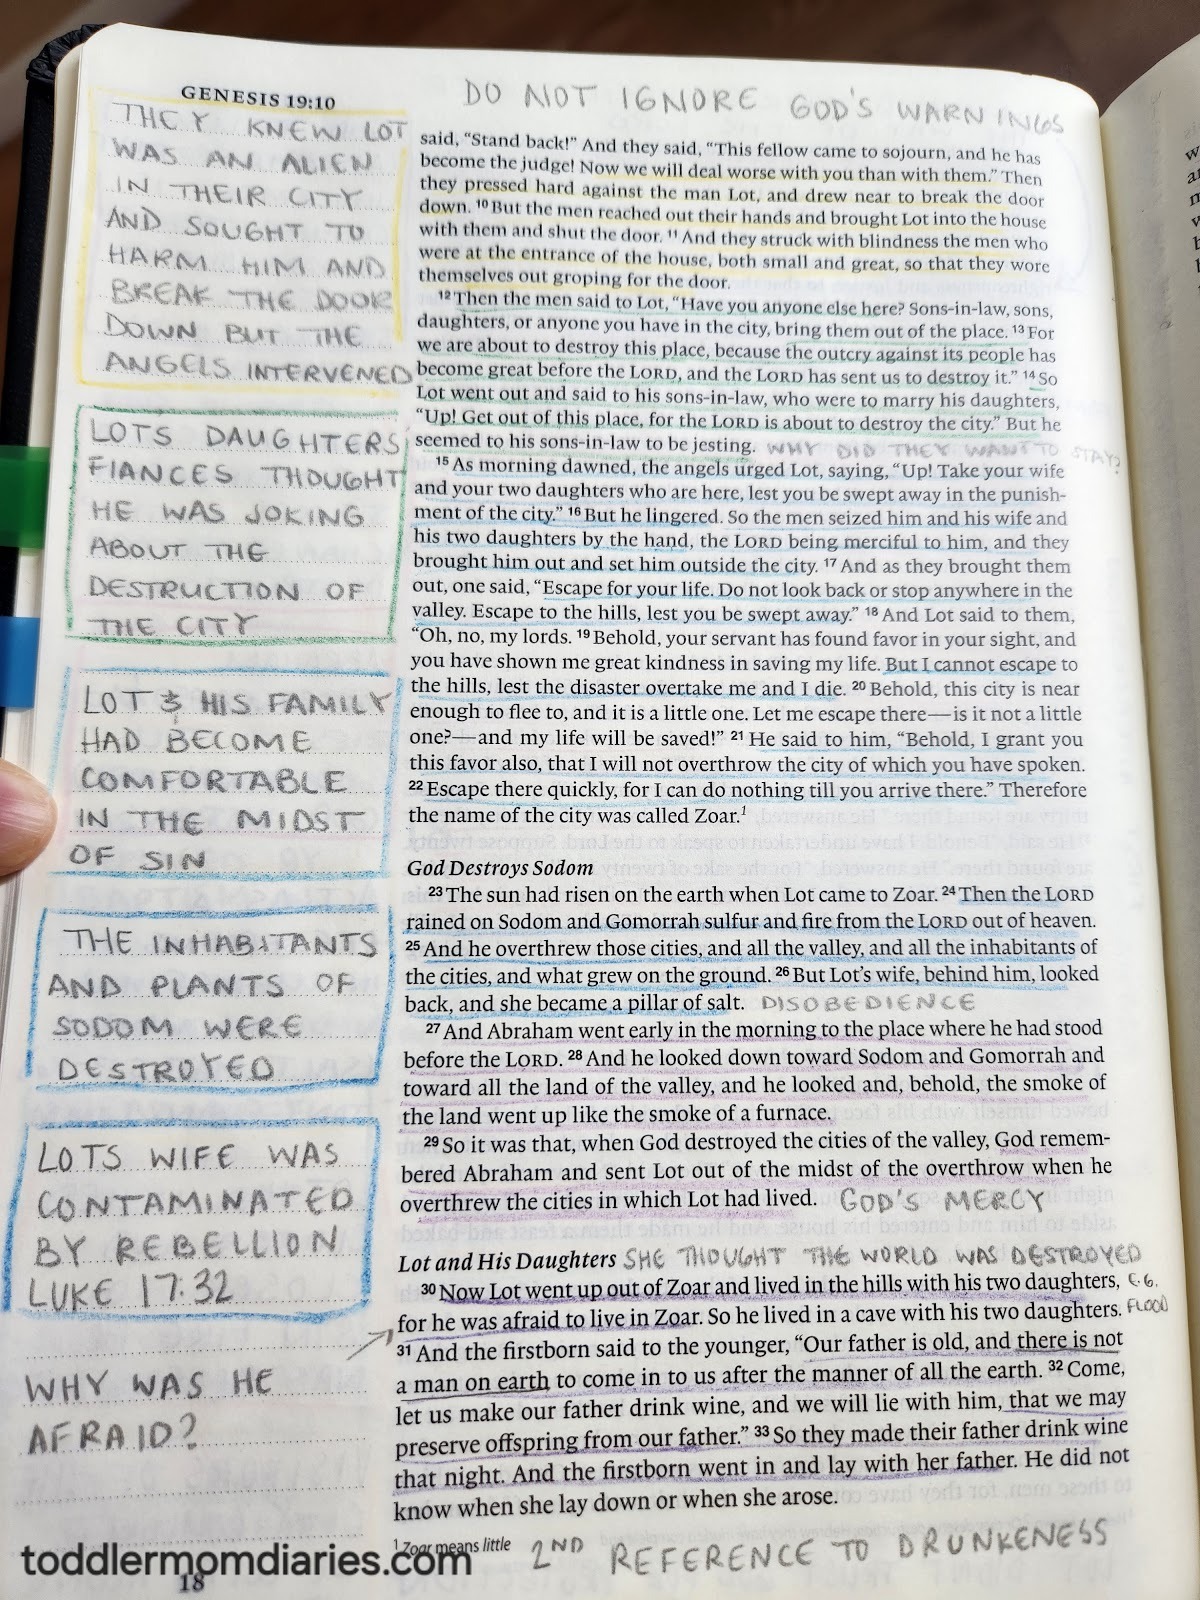 GENESIS 19:10
DO NOT IGNORE GOD'S WARNINGS
THEY KNEW LOT
WAS AN ALIEN
IN THEIR CITY
AND SOUGHT TO
HARM HIM AND
BREAK THE DOOR
DOWN BUT THE
ANGELS INTERVENED
LOTS DAUGHTERS
FIANCES THOUGHT
HE WAS JOKING
ABOUT THE
DESTRUCTION OF
THE CITY
LOT & HIS FAMILY
HAD BECOME
COMFORTABLE
IN THE MIDST
OF SIN
THE INHABITANTS
AND PLANTS OF
SODOM WERE
DESTROYED
LOTS WIFE WAS
CONTAMINATED
BY REBELLION
LUKE 17:32
WHY WAS HE
AFRAID?
said, “Stand back!” And they said, “This fellow came to sojourn, and he has
become the judge! Now we will deal worse with you than with them.” Then
they pressed hard against the man Lot, and drew near to break the door
down. 10 But the men reached out their hands and brought Lot into the house
with them and shut the door. 11 And they struck with blindness the men who
were at the entrance of the house, both small and great, so that they wore
themselves out groping for the door.
12 Then the men said to Lot, “Have you anyone else here? Sons-in-law, sons,
daughters, or anyone you have in the city, bring them out of the place. 13 For
we are about to destroy this place, because the outcry against its people has
become great before the LORD, and the LORD has sent us to destroy it.” 14 So
Lot went out and said to his sons-in-law, who were to marry his daughters,
“Up! Get out of this place, for the LORD is about to destroy the city.” But he
seemed to his sons-in-law to be jesting. WHY DID THEY WANT TO STAY?
15 As morning dawned, the angels urged Lot, saying, “Up! Take your wife
and your two daughters who are here, lest you be swept away in the punish-
ment of the city.” 16 But he lingered. So the men seized him and his wife and
his two daughters by the hand, the LORD being merciful to him, and they
brought him out and set him outside the city. 17 And as they brought them
out, one said, “Escape for your life. Do not look back or stop anywhere in the
valley. Escape to the hills, lest you be swept away.” 18 And Lot said to them,
“Oh, no, my lords. 19 Behold, your servant has found favor in your sight, and
you have shown me great kindness in saving my life. But I cannot escape to
the hills, lest the disaster overtake me and I die. 20 Behold, this city is near
enough to flee to, and it is a little one. Let me escape there—is it not a little
one?—and my life will be saved!” 21 He said to him, “Behold, I grant you
this favor also, that I will not overthrow the city of which you have spoken.
22 Escape there quickly, for I can do nothing till you arrive there.” Therefore
the name of the city was called Zoar.1
God Destroys Sodom
23 The sun had risen on the earth when Lot came to Zoar. 24 Then the LORD
rained on Sodom and Gomorrah sulfur and fire from the LORD out of heaven.
25 And he overthrew those cities, and all the valley, and all the inhabitants of
the cities, and what grew on the ground. 26 But Lot's wife, behind him, looked
back, and she became a pillar of salt. DISOBEDIENCE
27 And Abraham went early in the morning to the place where he had stood
before the LORD. 28 And he looked down toward Sodom and Gomorrah and
toward all the land of the valley, and he looked and, behold, the smoke of
the land went up like the smoke of a furnace.
29 So it was that, when God destroyed the cities of the valley, God remem-
bered Abraham and sent Lot out of the midst of the overthrow when he
overthrew the cities in which Lot had lived. GOD'S MERCY
Lot and His Daughters SHE THOUGHT THE WORLD WAS DESTROYED
30 Now Lot went up out of Zoar and lived in the hills with his two daughters, E.G.
for he was afraid to live in Zoar. So he lived in a cave with his two daughters. FLOOD
31 And the firstborn said to the younger, “Our father is old, and there is not
a man on earth to come in to us after the manner of all the earth. 32 Come,
let us make our father drink wine, and we will lie with him, that we may
preserve offspring from our father.” 33 So they made their father drink wine
that night. And the firstborn went in and lay with her father. He did not
know when she lay down or when she arose.
1 Zoar means little
2ND REFERENCE TO DRUNKENESS
toddlermomdiaries.com
18